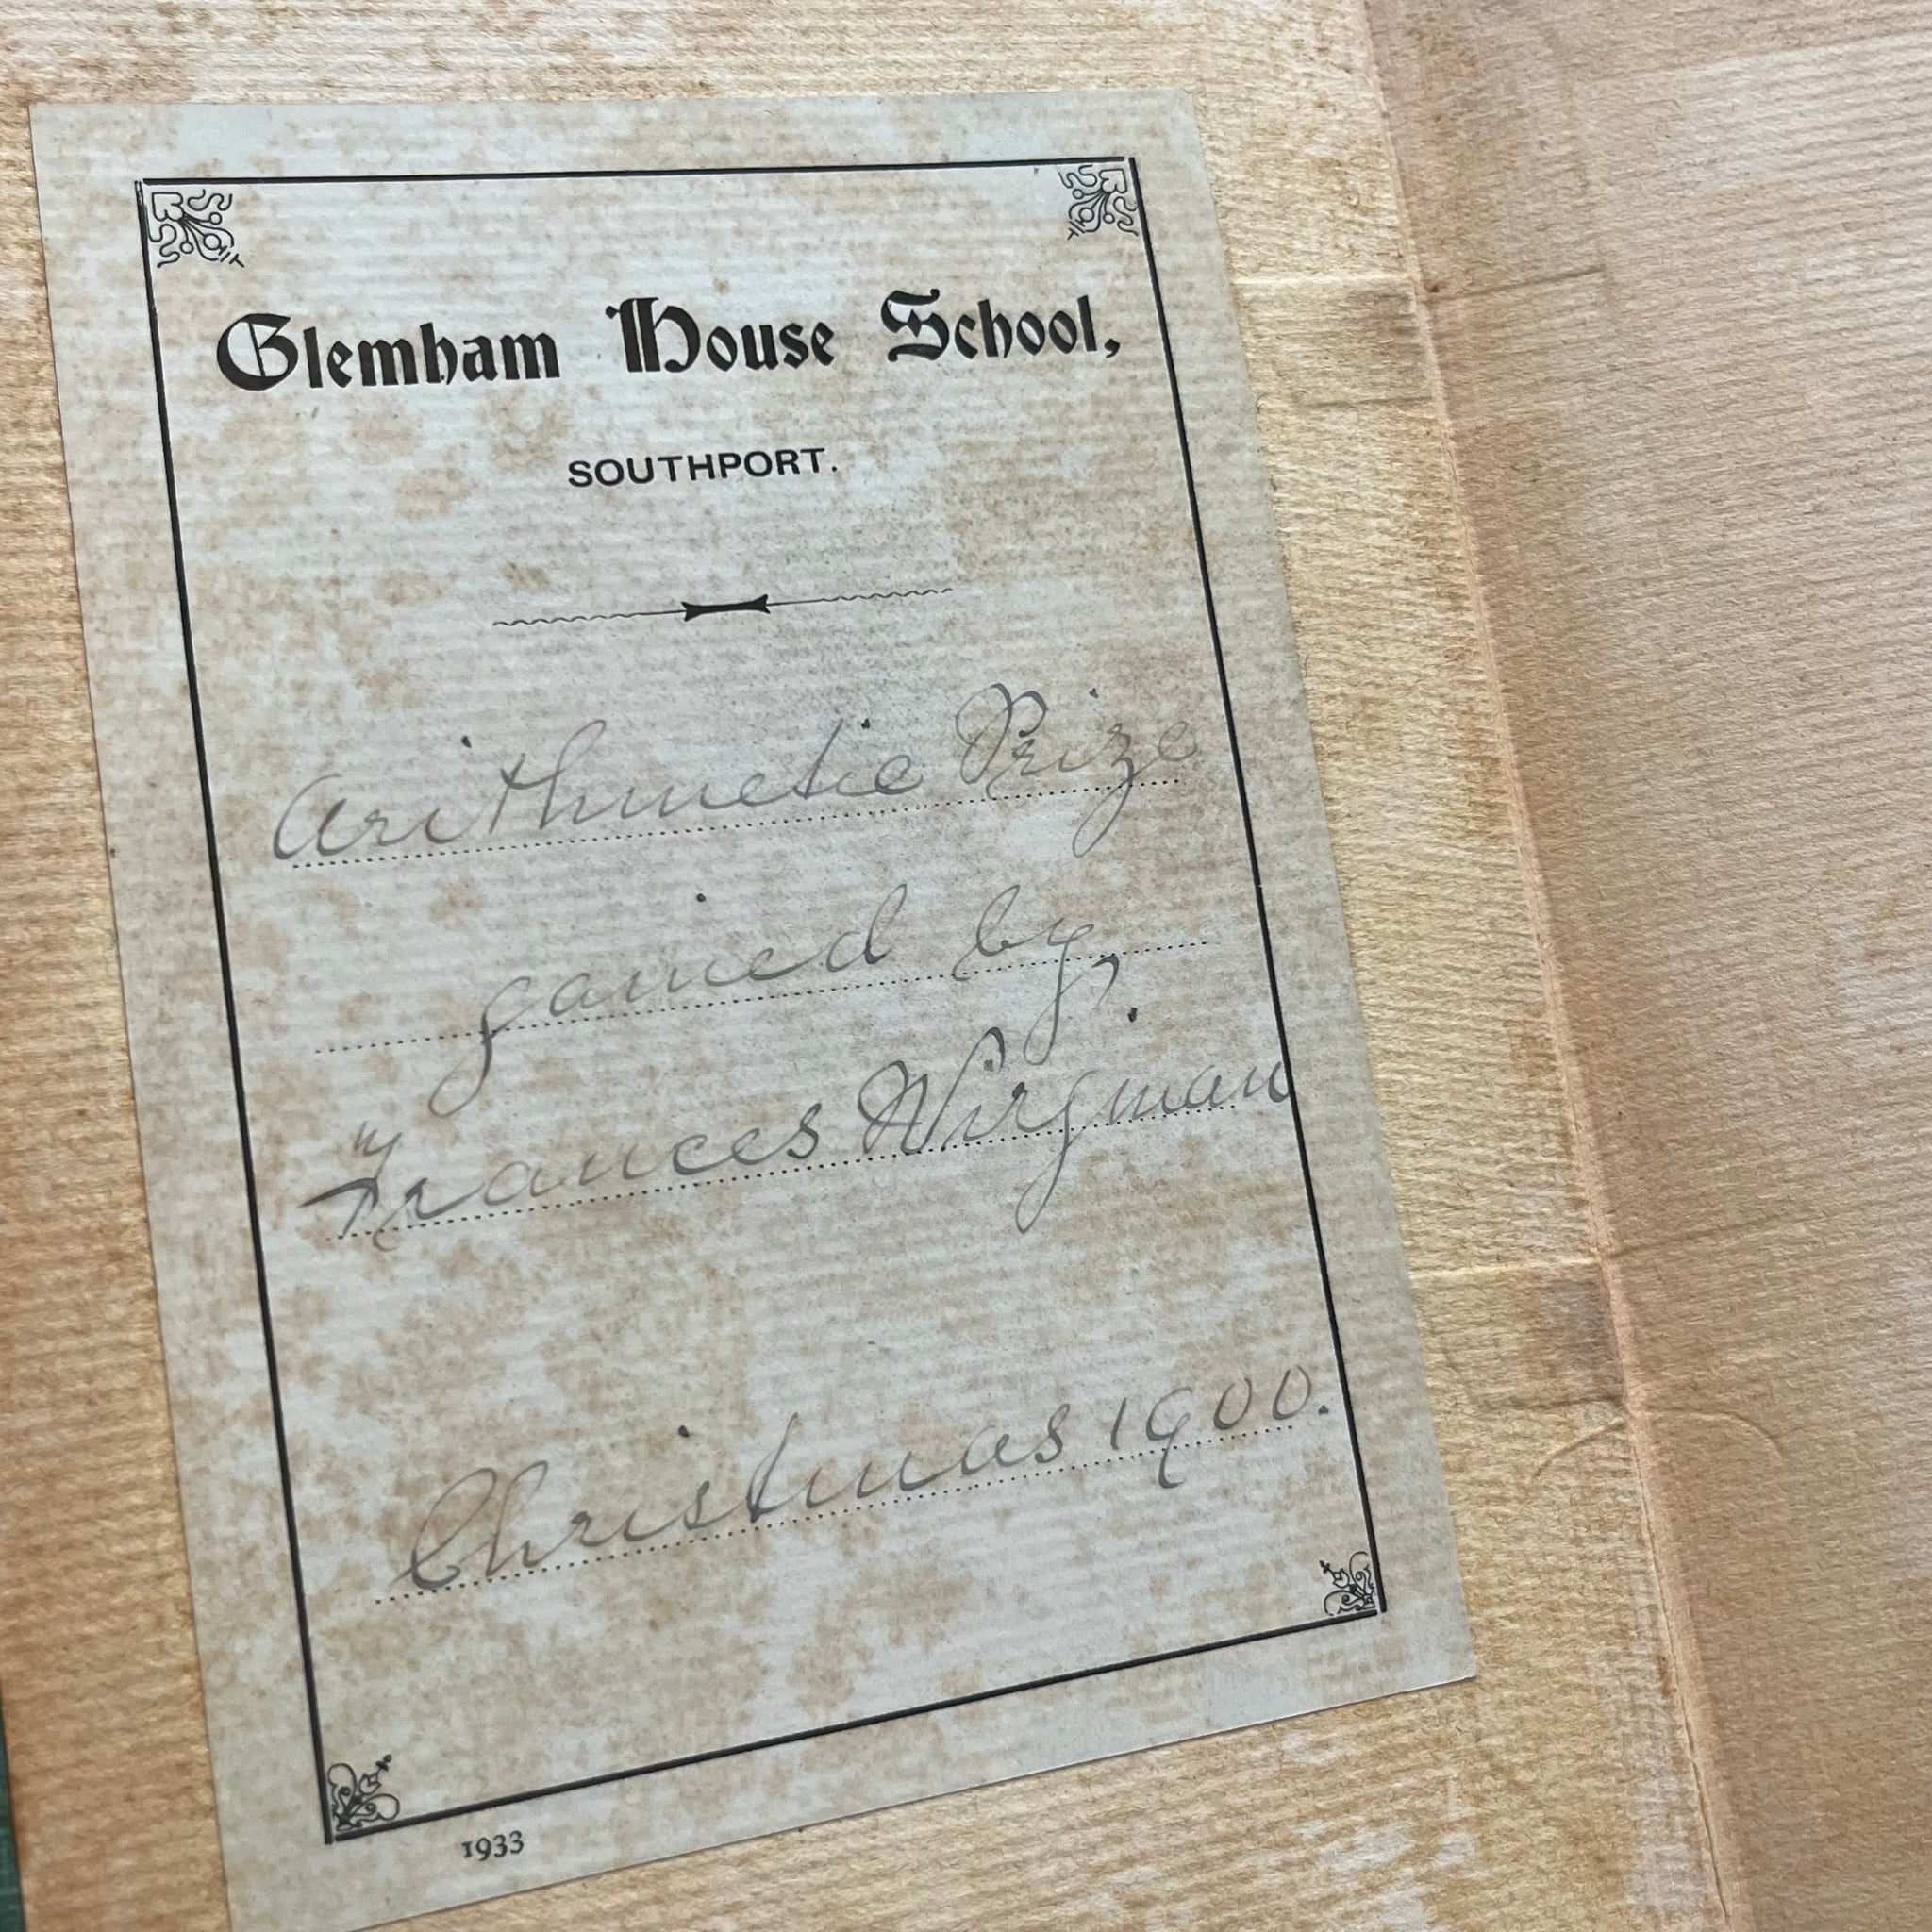 Glemham House School,
SOUTHPORT.
Arithmetic Prize
gained by
Frances Wirgman
Christmas 1900.
1933